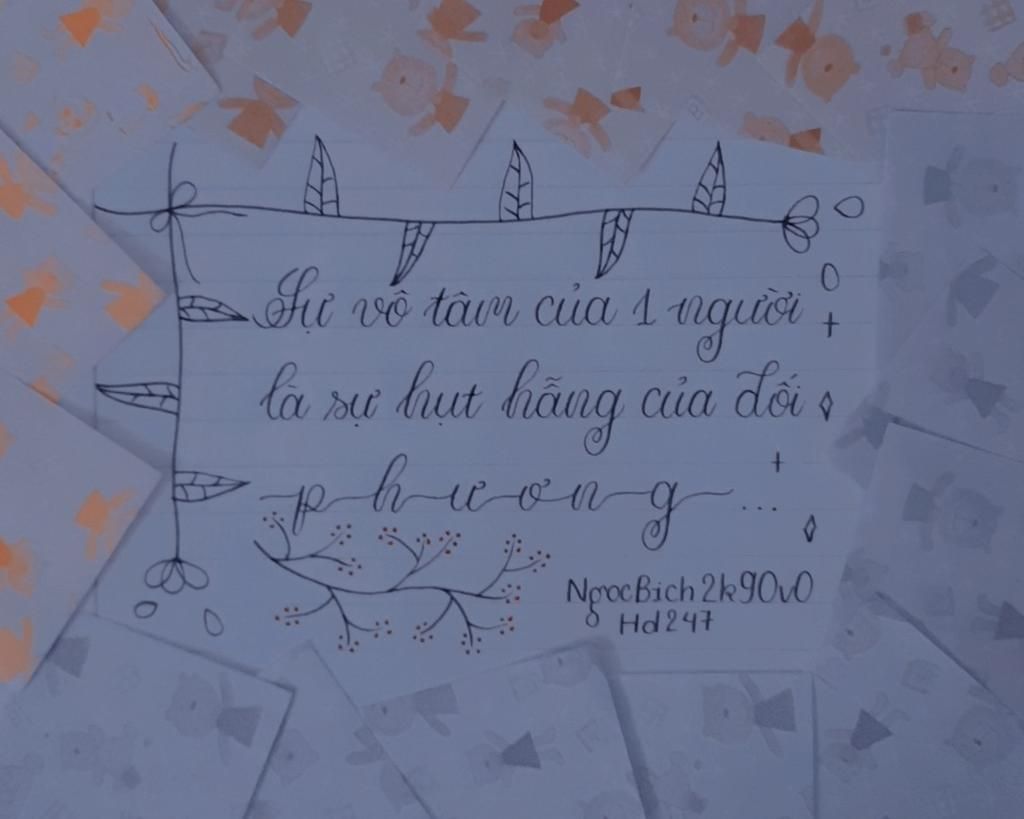 Sự vô tâm của 1 người
là sự hụt hẫng của đối
phương...
NgocBich2k90v0
Hd247